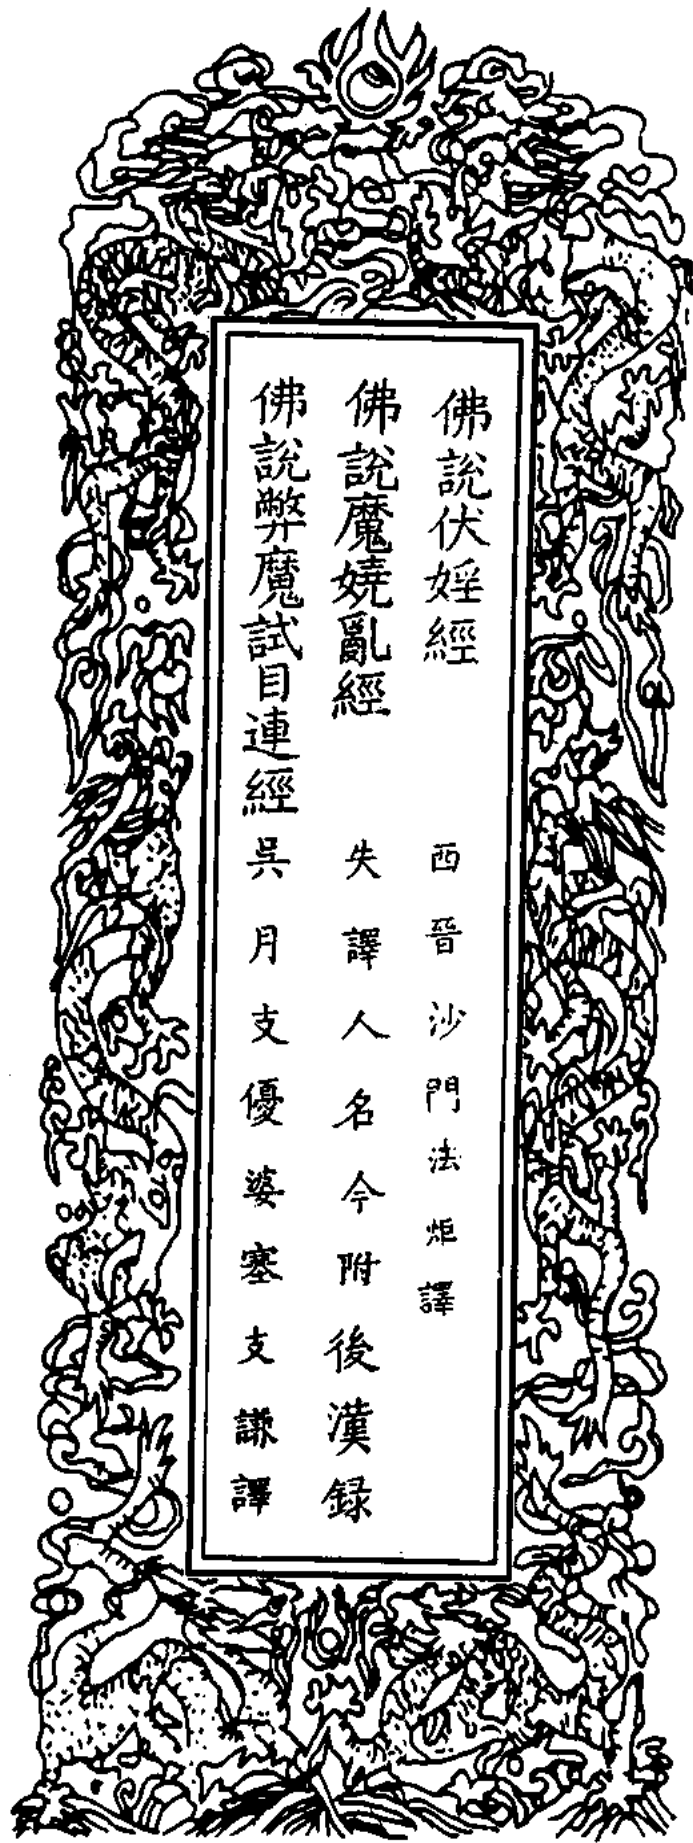 佛說伏婬經 西晉沙門法炬譯
佛說魔嬈亂經 失譯人名今附後漢録
佛說弊魔試目連經 吳月支優婆塞支謙譯